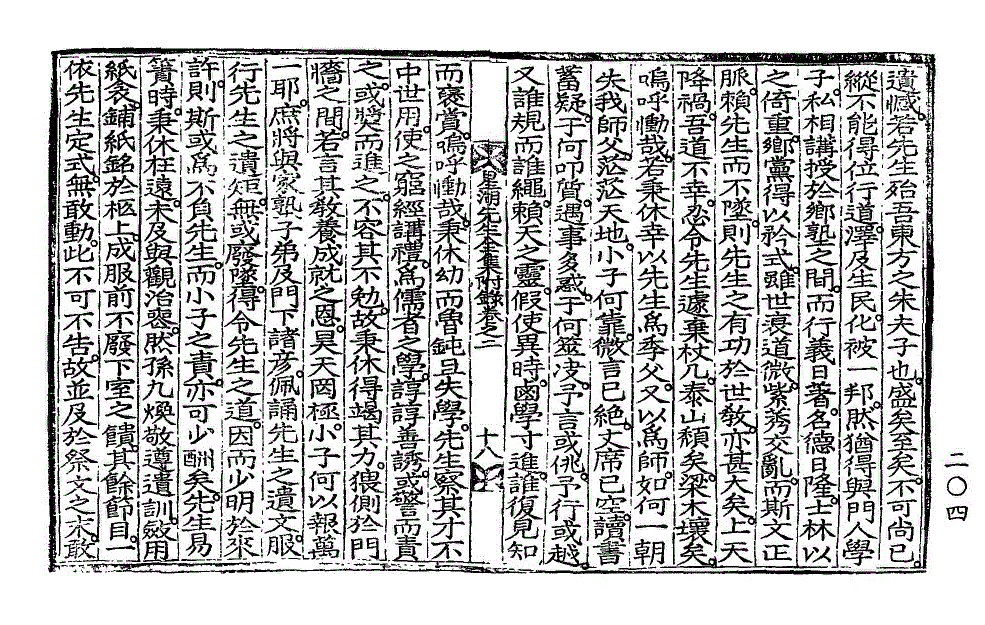 遺憾若先生殆吾東方之朱夫子也盛矣至矣不可尙已
縱不能得位行道澤及生民化被一邦然猶得與門人學
子私相講授於鄕塾之間而行義日著名德日隆士林以
之倚重鄕黨得以矜式雖世衰道微紫莠交亂而斯文正
脈賴先生而不墜則先生之有功於世敎亦甚大矣上天
降禍吾道不幸忍令先生遽棄杖几泰山頹矣梁木壞矣
嗚呼慟哉若秉休幸以先生爲季父又以爲師如何一朝
失我師父茫茫天地小子何靠微言已絶丈席已空讀書
蓄疑于何叩質遇事多惑于何筮决予言或佻予行或越
又誰規而誰繩賴天之靈假使異時鹵學寸進誰復見知
星湖先生全集附錄卷之二
十八
而褒賞嗚呼慟哉秉休幼而魯鈍且失學先生察其才不
中世用使之窮經講禮爲儒者之學諄諄善誘或警而責
之或奬而進之不容其不勉故秉休得竭其力猥側於門
墻之間若言其敎養成就之恩昊天罔極小子何以報萬
一耶庶將與家塾子弟及門下諸彥佩誦先生之遺文服
行先生之遺矩無或廢墜得令先生之道因而少明於來
許則斯或爲不負先生而小子之責亦可少酬矣先生易
簀時秉休在遠未及與觀治喪然孫九煥敬遵遺訓斂用
紙衾鋪紙銘於柩上成服前不廢下室之饋其餘節目一
依先生定式無敢動此不可不告故並及於祭文之末敢
二〇四